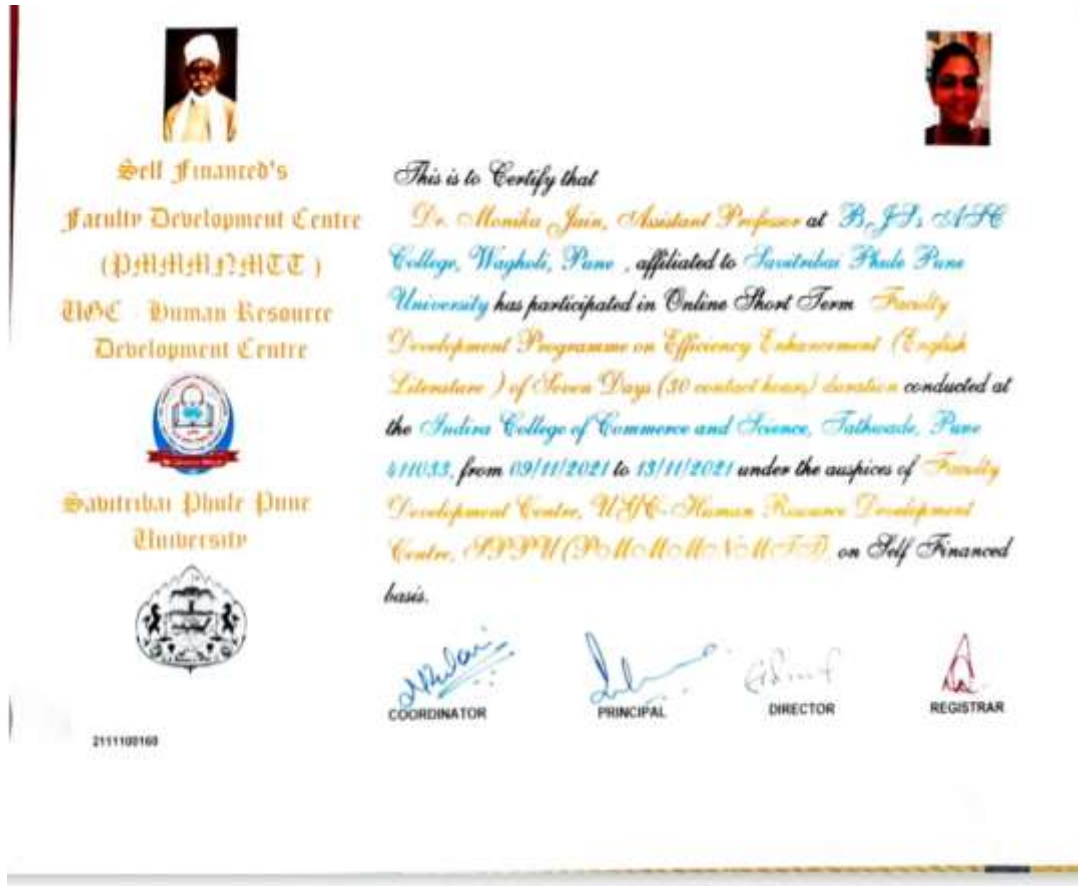 Self Financed's
Faculty Development Centre
(PMMMNMTT )
UGC - Human Resource
Development Centre
Savitribai Phule Pune
University
This is to Certify that
Dr. Monika Jain, Assistant Professor at B.JS. ASC
College, Wagholi, Pune , affiliated to Savitribai Phule Pune
University has participated in Online Short Term Faculty
Development Programme on Efficiency Enhancement (English
Literature ) of Seven Days (30 contact hours) duration conducted at
the Indira College of Commerce and Science, Tathwade, Pune
411033, from 09/11/2021 to 13/11/2021 under the auspices of Faculty
Development Centre, UGC-Human Resource Development
Centre, SPPU (PMMMNMTT), on Self Financed
basis.
COORDINATOR
PRINCIPAL
DIRECTOR
REGISTRAR
2111100160